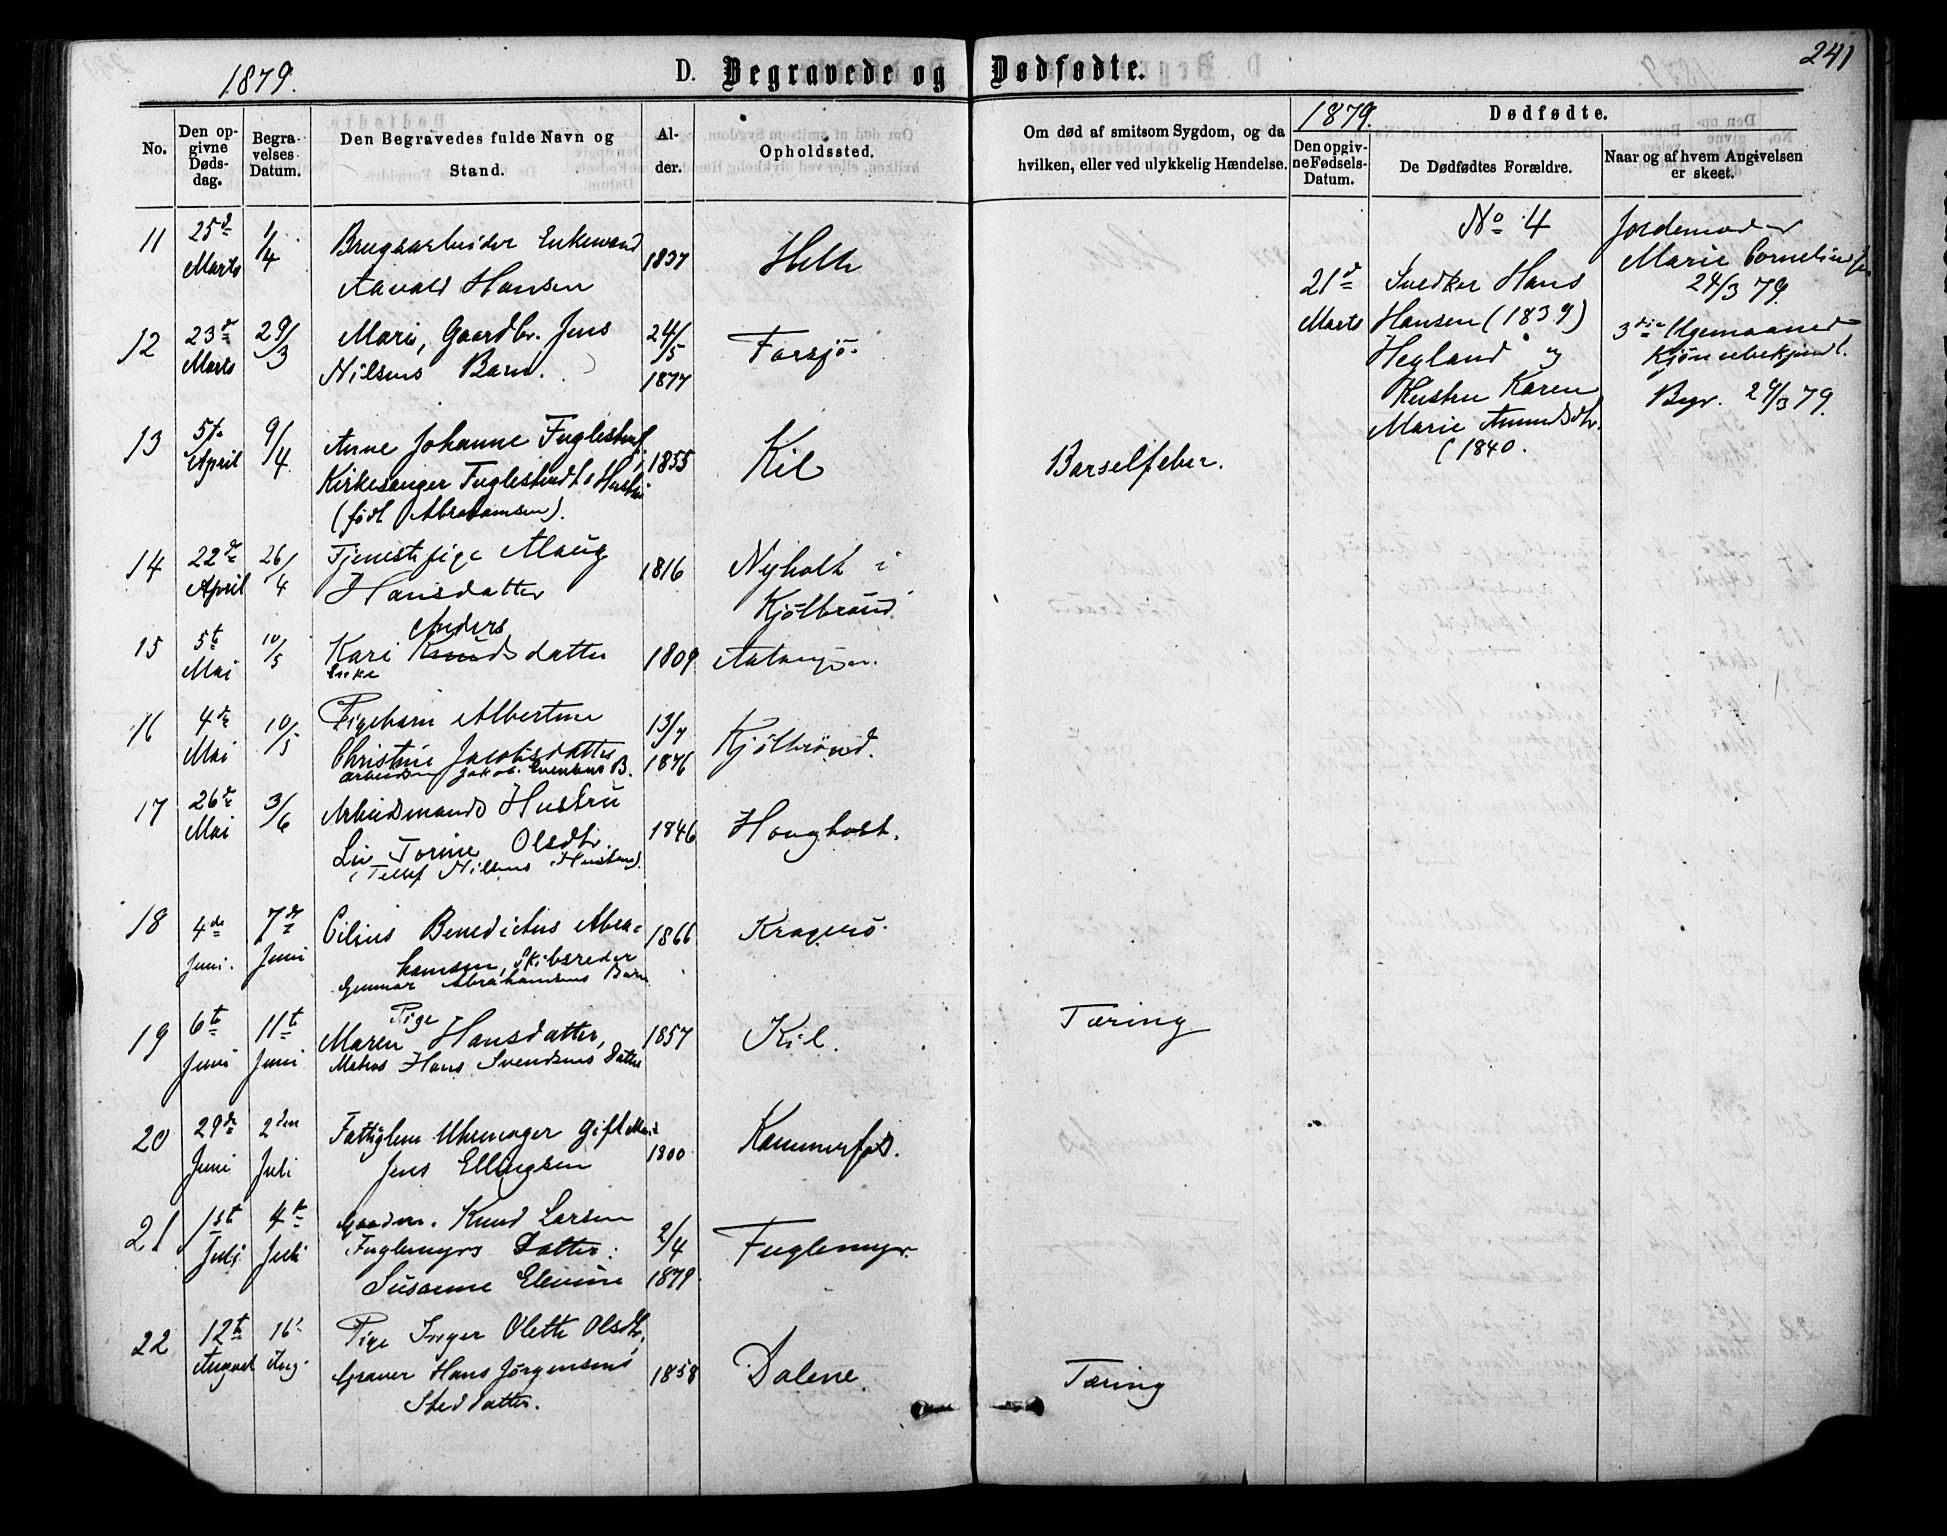 1879.
D. Begravede og Dødfødte.
241
No.
Den op-
givne
Døds-
dag.
Begra
velses
Datum.
Den Begravedes fulde Navn og
Stand.
Al-
der.
Opholdssted.
Om død af smitsom Sygdom, og da
hvilken, eller ved ulykkelig Hændelse.
1879.
Dødfødte.
Den opgiv-
ne Fødsels-
Datum.
De Dødfødtes Forældre.
Naar og af hvem Angivelsen
er skeet.
11
25d
Marts
1/4
Brugsarbeider Enkemand
Aavald Hansen
1837
Helle
12
23de
Marts
29/3
Mari, Gaardbr. Jens
Nilsens Barn.
24/5
1877
Farsjø.
13
5te
April
9/4.
Anne Johanne Fuglestvedt,
Kirkesanger Fuglestvedts Hustru
(født Abrahamsen).
1855
Kil
Barselfeber.
14
22de
April
26/4
Tjenestepige
Hansdatter
1816
Nyholt i
Kjølbrønd
15
5te
Mai
10/5
Anders
Kari Knudsdatter
Enke
1809
16
4de
Mai
10/5
Pigebarn Albertine
Christine Jacobsdatter
Arbeidsm. Jakob Svensens B.
13/7
1876
Kjølbrønd.
17
26de
Mai
3/6
Arbeidsmands Hustru
Liv Torine Olsdtr.
(Tellef Nilsens Hustru).
1846
Haugholt.
18
4de
Juni.
7de
Juni
Cilius Benedictus Abra-
hamsen, Skibsreder
Gunnar Abrahamsens Barn
1866
Kragerø.
19
6te
Juni
11te
Juni
Pige
Maren Hansdatter,
Matros Hans Svendsens Datter
1857
Kil.
Tæring
20
29de
Juni
2den
Juli
Fattiglem Uhrmager gift Mand
Jens Ellingsen
1800
Kammerfos.
21
1st
Juli
4de
Juli
Gaardm. Knud Larsen
Fuglemyrs Datter:
Susanne Elevine
2/4
1879.
Fuglemyr.
22
12te
August
16'
Aug.
Pige Inger Olette Olsdtr,
Graver Hans Jørgensens
Steddatter.
1858
Dalene.
Tæring
21de
Marts
No 4
Svedker Hans
Hansen (1839)
Hegland og
Hustru Karen
Marie Amundsdtr.
(1840.
Jordemoder
Marie Corneliussen
24/3 79.
3die Ugemaaned
Kjøn ubekjendt.
Begr. 29/3 79.